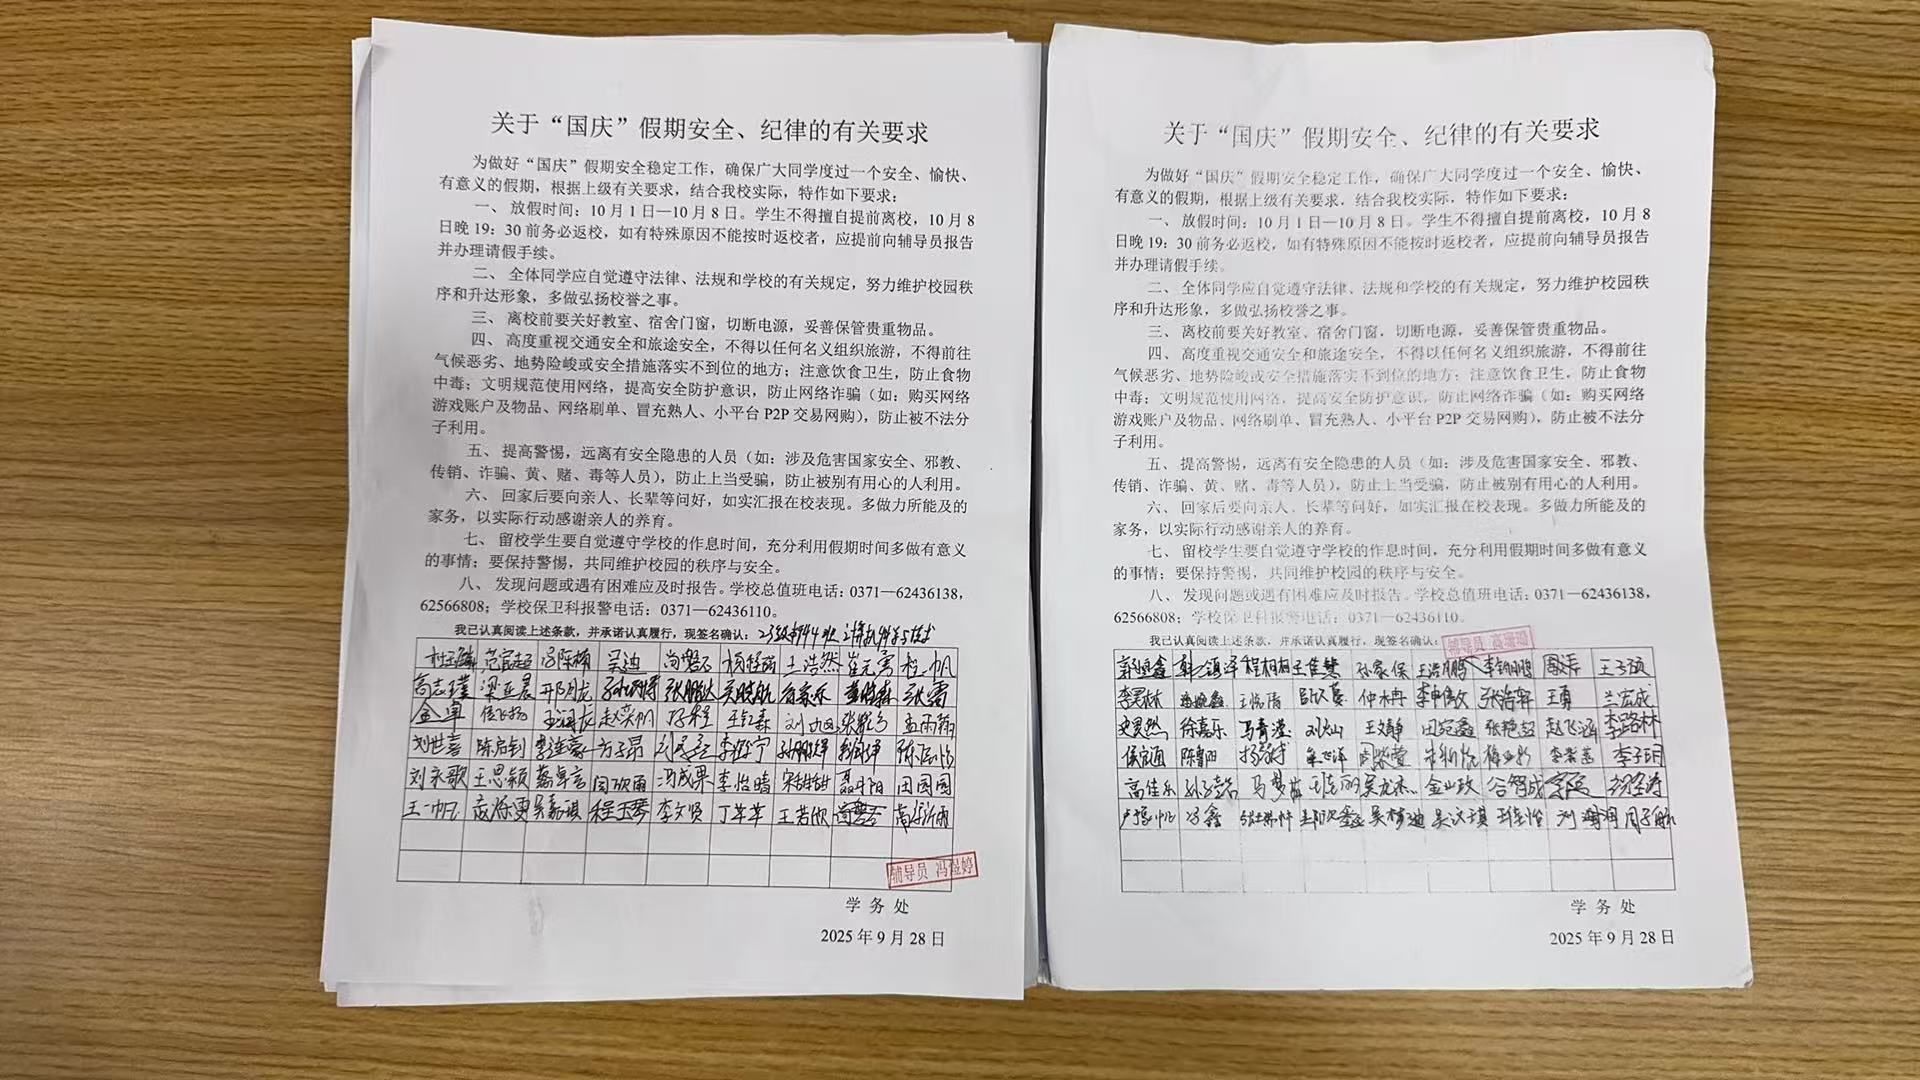 关于“国庆”假期安全、纪律的有关要求
为做好“国庆”假期安全稳定工作，确保广大同学度过一个安全、愉快、
有意义的假期，根据上级有关要求，结合我校实际，特作如下要求：
一、 放假时间：10 月 1 日—10 月 8 日。学生不得擅自提前离校，10 月 8
日晚 19：30 前务必返校，如有特殊原因不能按时返校者，应提前向辅导员报告
并办理请假手续。
二、 全体同学应自觉遵守法律、法规和学校的有关规定，努力维护校园秩
序和升达形象，多做弘扬校誉之事。
三、 离校前要关好教室、宿舍门窗，切断电源，妥善保管贵重物品。
四、 高度重视交通安全和旅途安全，不得以任何名义组织旅游，不得前往
气候恶劣、地势险峻或安全措施落实不到位的地方；注意饮食卫生，防止食物
中毒；文明规范使用网络，提高安全防护意识，防止网络诈骗（如：购买网络
游戏账户及物品、网络刷单、冒充熟人、小平台 P2P 交易网购），防止被不法分
子利用。
五、 提高警惕，远离有安全隐患的人员（如：涉及危害国家安全、邪教、
传销、诈骗、黄、赌、毒等人员），防止上当受骗，防止被别有用心的人利用。
六、 回家后要向亲人、长辈等问好，如实汇报在校表现。多做力所能及的
家务，以实际行动感谢亲人的养育。
七、 留校学生要自觉遵守学校的作息时间，充分利用假期时间多做有意义
的事情；要保持警惕，共同维护校园的秩序与安全。
八、 发现问题或遇有困难应及时报告。学校总值班电话：0371—62436138，
62566808；学校保卫科报警电话：0371—62436110。
我已认真阅读上述条款，并承诺认真履行，现签名确认：
吴迪 王浩然 杜一帆
高志瑾 梁亚晨 张鹏达 张露
金卓 赵奕帆 王钇森 孟雨翰
刘世喜 陈启钊 李连豪 方子昂
刘永歌 王思颖 闫欣雨 冯成果 李怡晴 宋甜甜 聂升阳 田园园
王一帆 吴嘉琪 程玉琴 李文贤 丁苹苹 王若欣
辅导员 冯煜婷
学 务 处
2025 年 9 月 28 日
关于“国庆”假期安全、纪律的有关要求
为做好“国庆”假期安全稳定工作，确保广大同学度过一个安全、愉快、
有意义的假期，根据上级有关要求，结合我校实际，特作如下要求：
一、 放假时间：10 月 1 日—10 月 8 日。学生不得擅自提前离校，10 月 8
日晚 19：30 前务必返校，如有特殊原因不能按时返校者，应提前向辅导员报告
并办理请假手续。
二、 全体同学应自觉遵守法律、法规和学校的有关规定，努力维护校园秩
序和升达形象，多做弘扬校誉之事。
三、 离校前要关好教室、宿舍门窗，切断电源，妥善保管贵重物品。
四、 高度重视交通安全和旅途安全，不得以任何名义组织旅游，不得前往
气候恶劣、地势险峻或安全措施落实不到位的地方；注意饮食卫生，防止食物
中毒；文明规范使用网络，提高安全防护意识，防止网络诈骗（如：购买网络
游戏账户及物品、网络刷单、冒充熟人、小平台 P2P 交易网购），防止被不法分
子利用。
五、 提高警惕，远离有安全隐患的人员（如：涉及危害国家安全、邪教、
传销、诈骗、黄、赌、毒等人员），防止上当受骗，防止被别有用心的人利用。
六、 回家后要向亲人、长辈等问好，如实汇报在校表现。多做力所能及的
家务，以实际行动感谢亲人的养育。
七、 留校学生要自觉遵守学校的作息时间，充分利用假期时间多做有意义
的事情；要保持警惕，共同维护校园的秩序与安全。
八、 发现问题或遇有困难应及时报告。学校总值班电话：0371—62436138，
62566808；学校保卫科报警电话：0371—62436110。
我已认真阅读上述条款，并承诺认真履行，现签名确认： 辅导员
孙家保 王浩鹏 王子硕
仲木冉 张浩轩 王勇 兰宏成
史昊然 徐嘉乐 马青滢 刘灿 王文静 张艳超 李路林
侯宜通 陈鲁阳 李子玥
高佳乐 吴龙杰 金山政 谷智成
冯鑫
学 务 处
2025 年 9 月 28 日